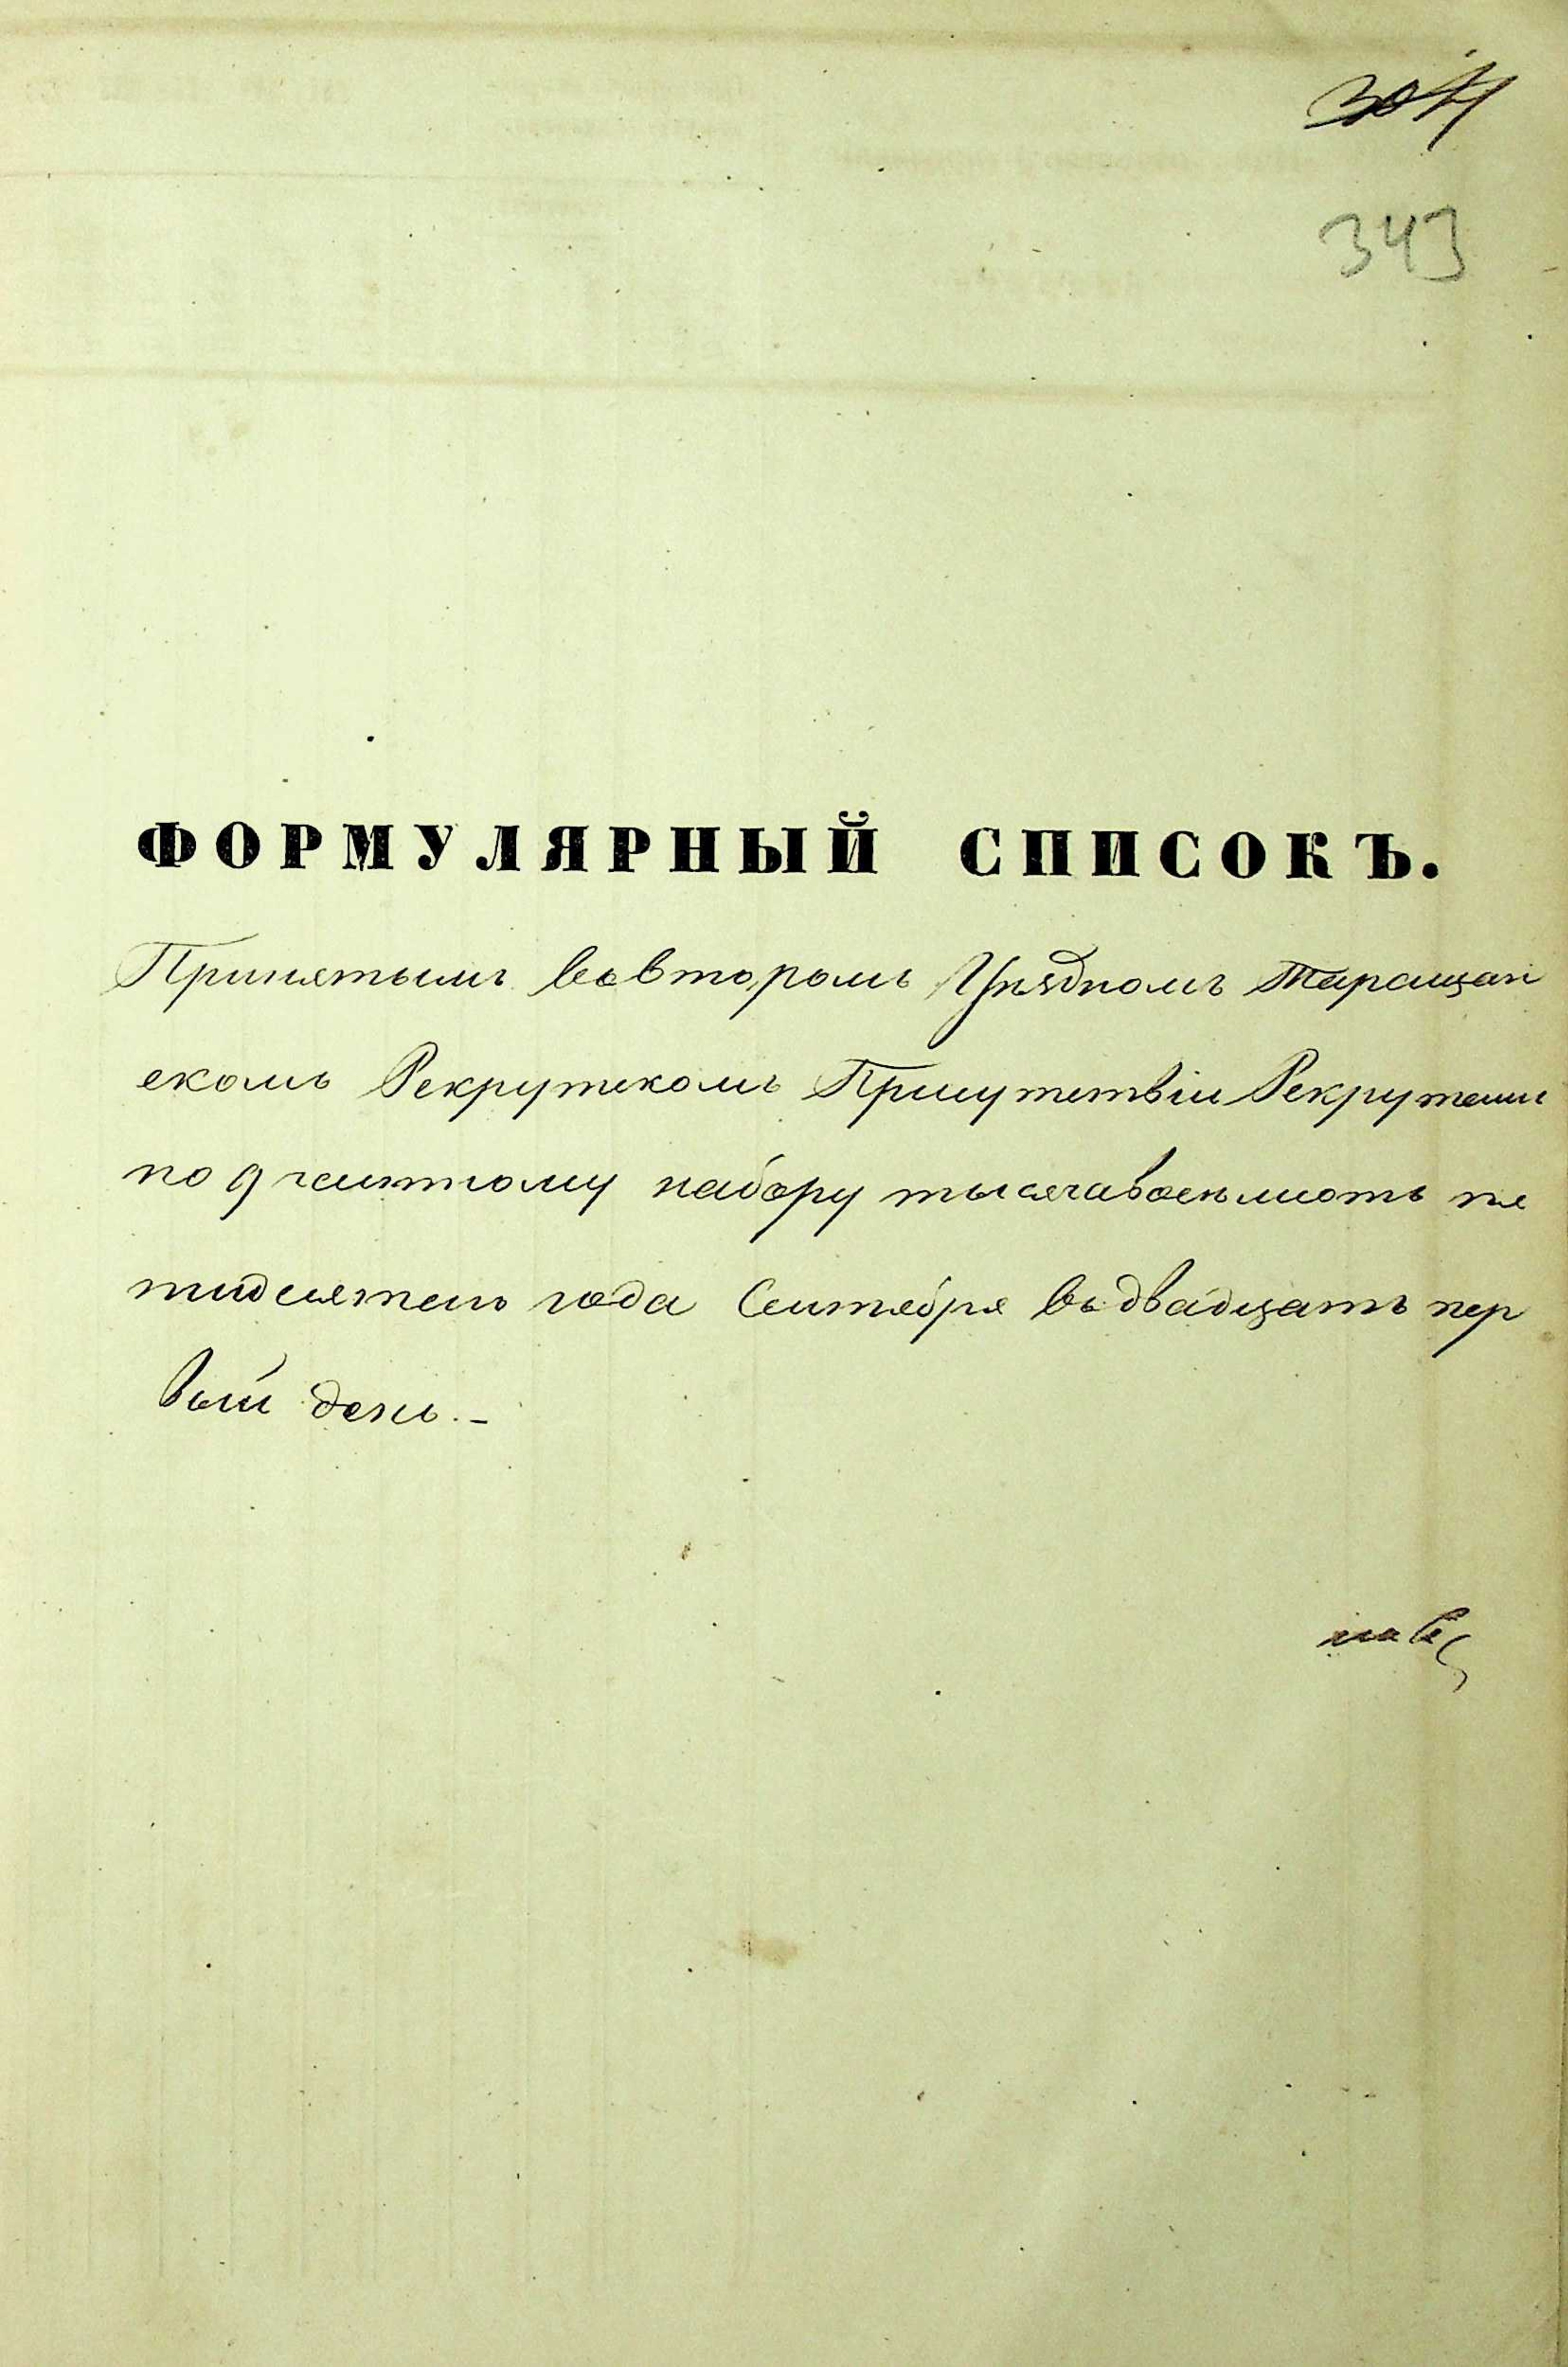 343
ФОРМУЛЯРНЫЙ СПИСОКЪ.
Принятымъ вовторомъ Уѣздномъ Таращан
скомъ Рекрутскомъ Присутствіи Рекрутамъ
по 9 частному набору тысячавосемьсотъ пя
тидесятого года Сентября въ двадцать пер
вый день.-